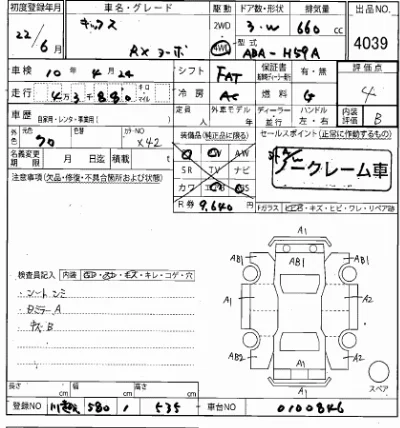 初度登録年月
車名・グレード
駆動
ドア数・形状
排気量
出品NO.
22/6月
キックス
RXターボ
2WD
4WD
3・W
660 cc
型式
ABA-H59A
4039
車検
10年4月24
シフト
FAT
保証書
有・無
評価点
走行
4万3千880
キロ
マイル
冷房
AC
燃料
G
4
車歴
自家用・レンタ・事業用( )
定員
人
外車モデル
年
ディーラー
並行
ハンドル
左・右
内装評価
B
外色
元色
色替
カラーNO
X42
装備品(純正品に限る)
セールスポイント(正常に作動するもの)
名義変更期限
月 日迄
積載
t
AW
SR
TV
ナビ
カワ
ノークレーム車
注意事項(欠品・修復・不具合箇所および状態)
R券
9,640円
Fガラス
キズ・ヒビ・ワレ・リペア跡
A1
AB1
AB1
AB1
A1
A2
AB2
A2
A1
スペア
検査員記入
内装
キレ・コゲ・穴
・シートシミ
A
B
長さ
cm
幅
cm
高さ
cm
登録NO
580
535
車台NO
0100846